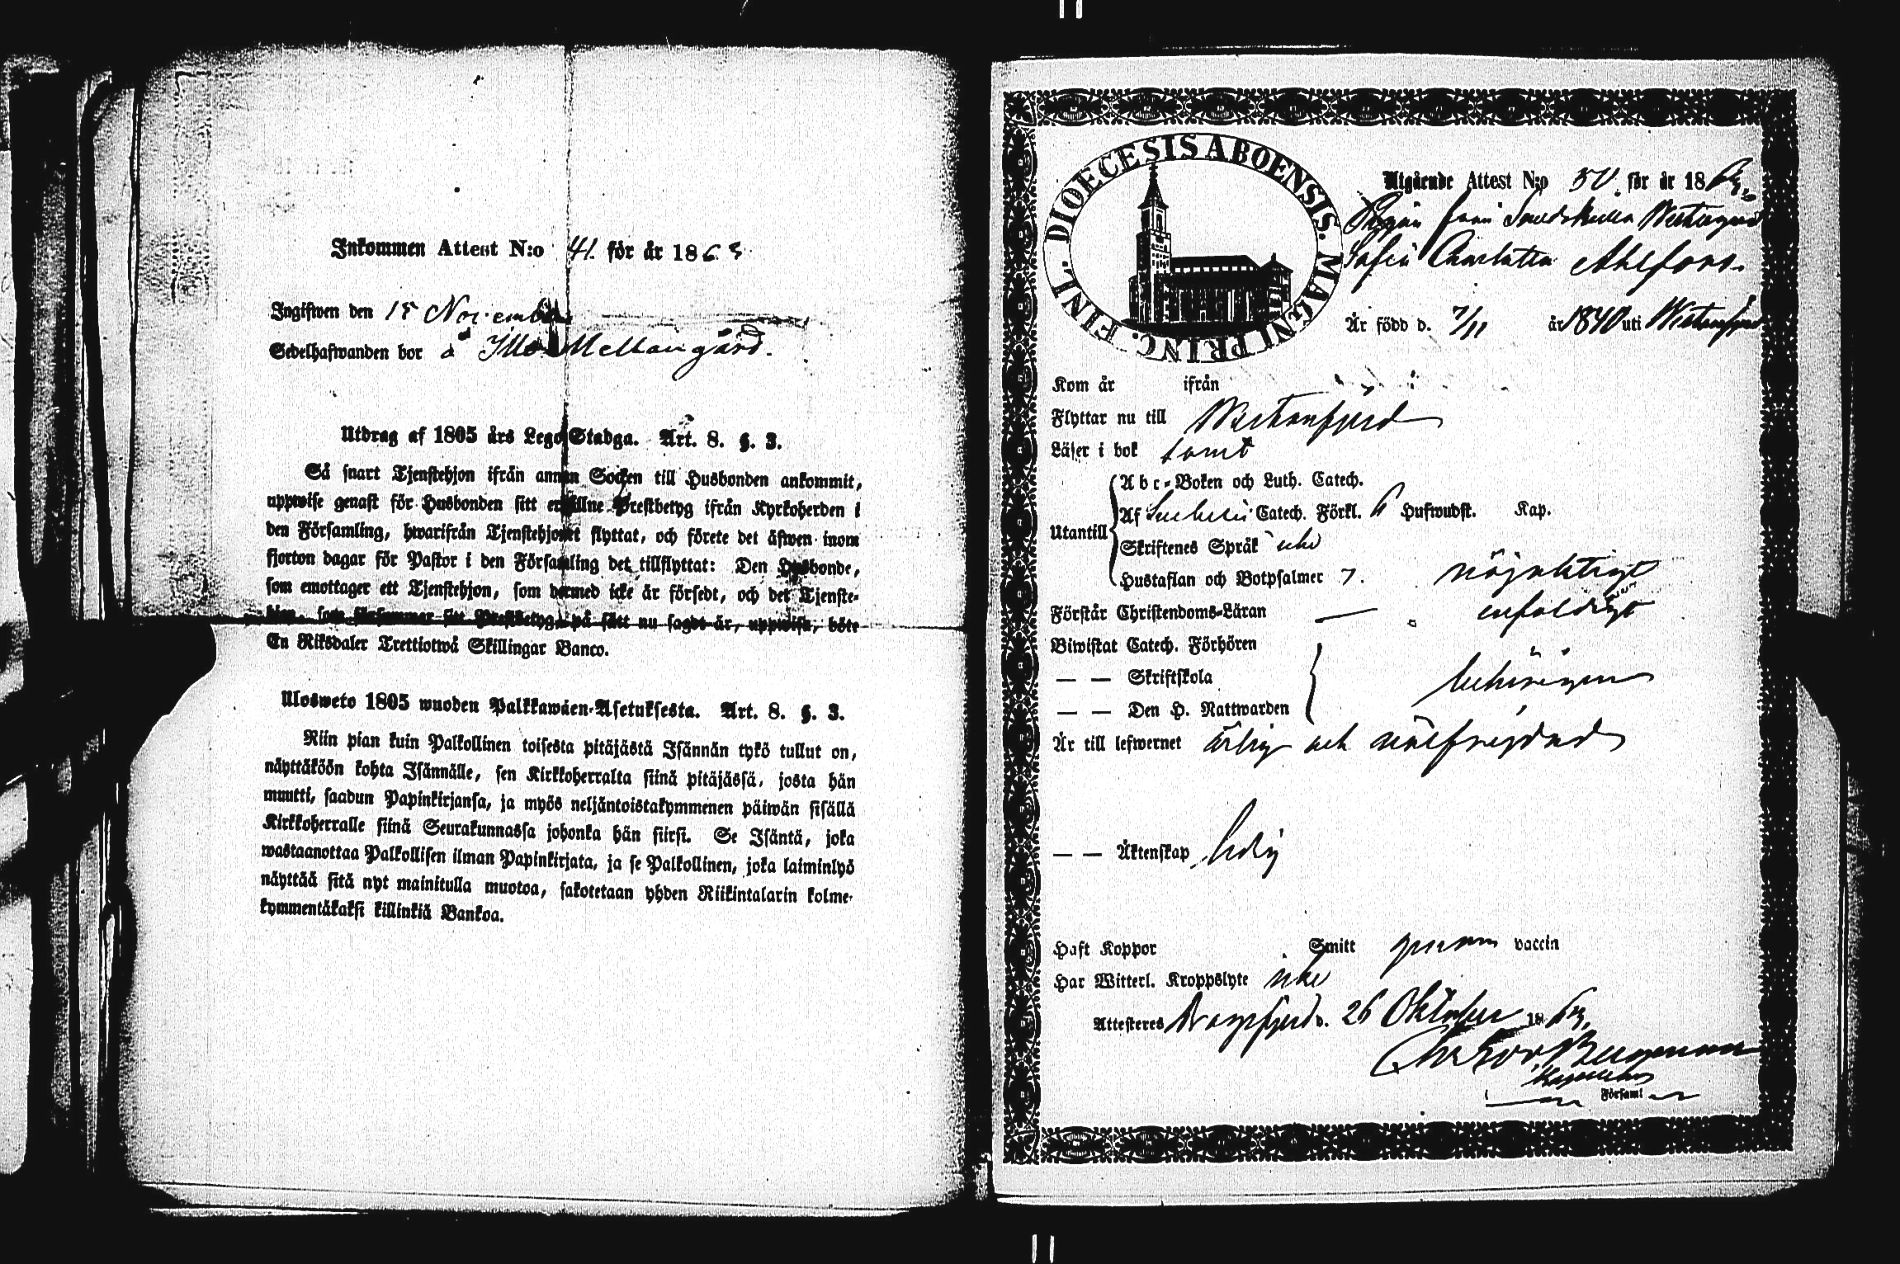 Inkommen Attest N:o 41. för år 1863
Ingifwen den 15 November
Sedelhafwanden bor å Illo Mellangård.
Utdrag af 1805 års Lego Stadga. Art. 8. §. 3.
Så snart Tjenstehjon ifrån annan Socken till Husbonden ankommit,
uppwise genast för Husbonden sitt erhållne Prestbetyg ifrån Kyrkoherden i
den Församling, hwarifrån Tjenstehjonet flyttat, och förete det äfwen inom
fjorton dagar för Pastor i den Församling det tillflyttat: Den Husbonde,
som emottager ett Tjenstehjon, som dermed icke är försedt, och det Tjenste-
hjon, som försummar sitt Prestbetyg på sätt nu sagdt är, uppwisa, böte
En Riksdaler Trettiotwå Skillingar Banco.
Ulosweto 1805 wuoden Palkkawäen-Asetuksesta. Art. 8. §. 3.
Niin pian kuin Palkollinen toisesta pitäjästä Isännän tykö tullut on,
näyttäköön kohta Isännälle, sen Kirkkoherralta siinä pitäjässä, josta hän
muutti, saadun Papinkirjansa, ja myös neljäntoistakymmenen päiwän sisällä
Kirkkoherralle siinä Seurakunnassa johonka hän siirsi. Se Isäntä, joka
wastaanottaa Palkollisen ilman Papinkirjata, ja se Palkollinen, joka laiminlyö
näyttää sitä nyt mainitulla muotoa, sakotetaan yhden Riikintalarin kolme-
kymmentäkaksi killinkiä Bankoa.
FINL. DIOECESIS ABOENSIS. MAGNI PRINC.
Utgående Attest N:o 50. för år 1863.
Pigan från Westergård
Sofia Charlotta Ahlfors.
Är född d. 7/11 år 1840 uti Westanfjerd
Kom år ifrån
Flyttar nu till Westanfjerd
Läser i bok samt
Utantill
A b c-Boken och Luth. Catech.
Af Svebelii Catech. Förkl. 6 Hufwudst. Kap.
Skriftenes Språk icke
Hustaflan och Botpsalmer 7. nöjaktigt
Förstår Christendoms-Läran — enfaldigt
Biwistat Catech. Förhören
— — Skriftskola behörigen
— — Den H. Nattwarden
Är till lefwernet ärlig och wälfrejdad
— — Äktenskap ledig
Haft Koppor Smitt genom vaccin
Har Witterl. Kroppslyte icke
Attesteres Dragsfjerd d. 26 Oktober 1863.
Bergman
Kapellan
Församl